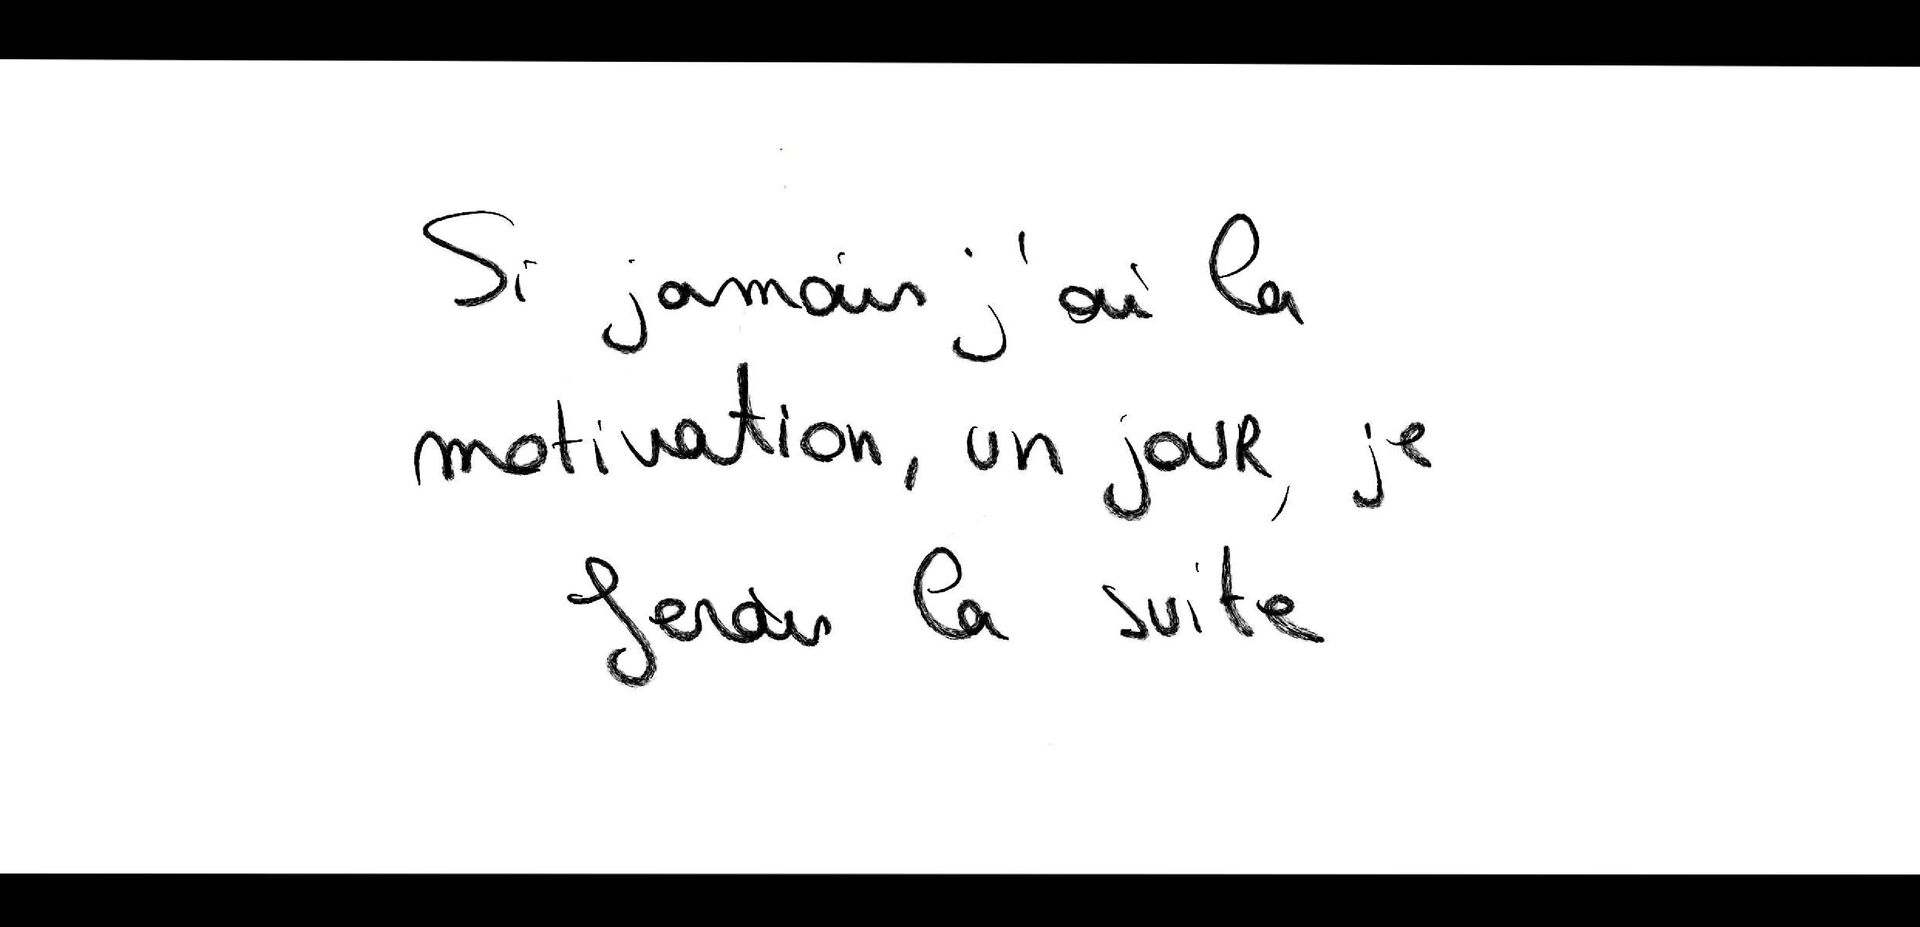 Si jamais j'ai la
motivation, un jour, je
ferais la suite